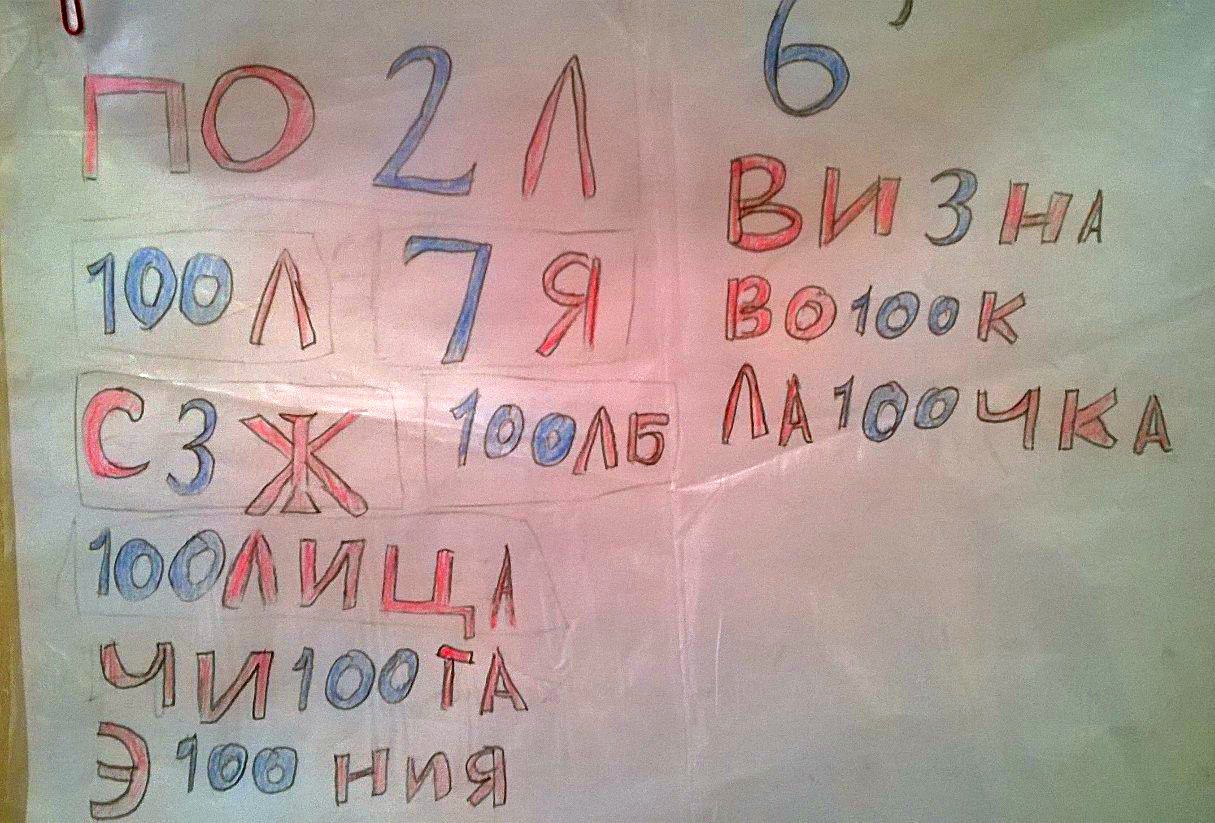 ПО 2 Л
100Л 7Я
С3Ж 100ЛБ
100ЛИЦА
ЧИ100ТА
Э100НИЯ
6 ,
ВИ3НА
ВО100К
ЛА100ЧКА